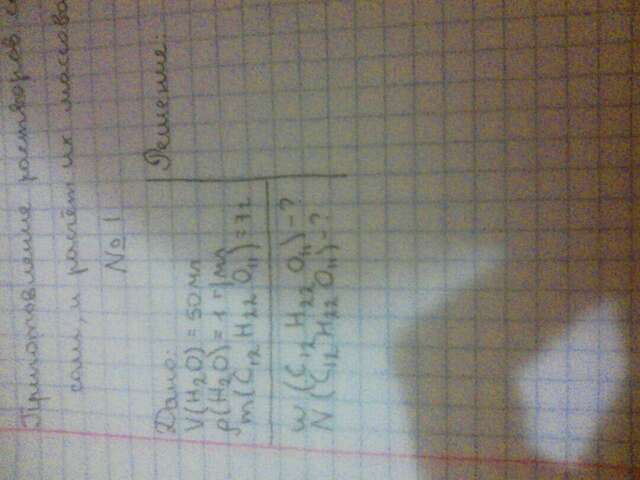 Приготовление растворов
соли, и расчёт их массовой
№ 1
Дано:
V(H2O) = 50 мл
ρ(H2O) = 1 г/мл
m(C12H22O11) = 7г
w(C12H22O11) - ?
N(C12H22O11) - ?
Решение: